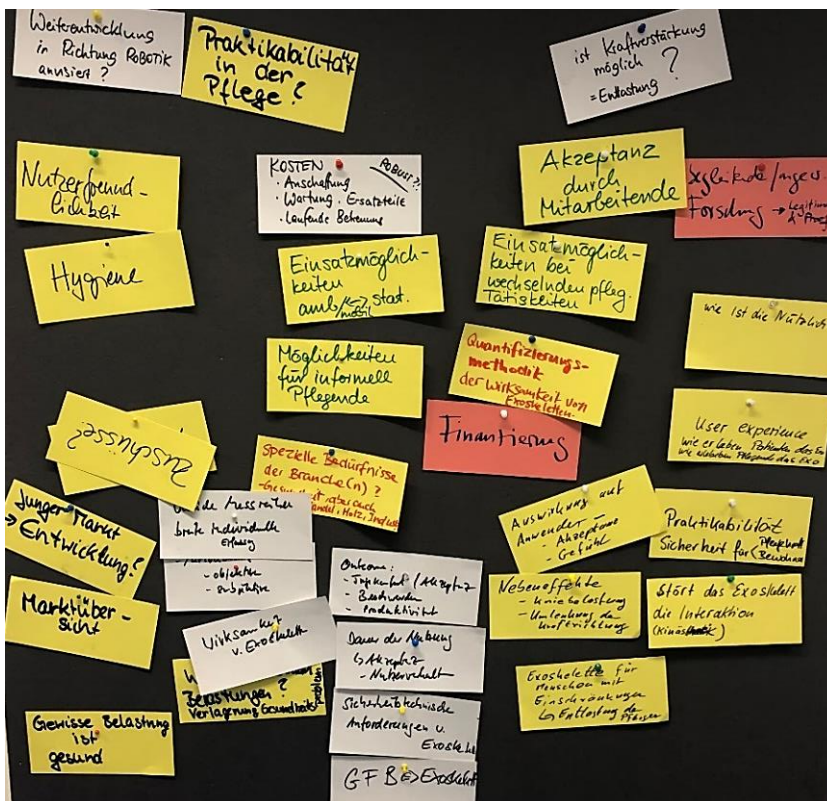 Weiterentwicklung
in Richtung ROBOTIK
anvisiert?
Praktikabilität
in der
Pflege?
ist Kraftverstärkung
möglich ?
= Entlastung
Nutzerfreund-
lichkeit
KOSTEN
ROBUST?!
· Anschaffung
· Wartung · Ersatzteile
· Laufende Betreuung
Akzeptanz
durch
Mitarbeitende
begleitende /
Forschung →
Hygiene
Einsatzmöglich-
keiten
amb. ↔ stat.
/mobil
Einsatzmöglich-
keiten bei
wechselnden pfleg.
Tätigkeiten
wie ist die Nützlich
Möglichkeiten
für informell
Pflegende
Quantifizierungs-
methodik
der Wirksamkeit von
Exoskeletten
Finanzierung
User experience
wie erleben Patienten das Exo
wie erleben Pflegende das Exo
Zuschüsse?
Spezielle Bedürfnisse
der Branche(n) ?
Junger Markt
→ Entwicklung?
breite individuelle
- objektive
- subjektive
Auswirkung auf
Anwender
- Akzeptanz
- Gefühl
Praktikabilität
Sicherheit für
Outcome:
- Beschwerden
- Produktivität
Nebeneffekte
- Kniebelastung
- Umlenkung der
Kraftrichtung
Stört das Exoskelett
die Interaktion
Marktüber-
sicht
Wirksamkeit
v. Exoskelett
Dauer der Nutzung
↳ Akzeptanz
Belastungen ?
Verlagerung Gesundheitsproblem
Exoskelette für
Menschen mit
Einschränkungen
Sicherheitstechnische
Anforderungen v.
Gewisse Belastung
ist
gesund
GFB ⇔ Exoskelett